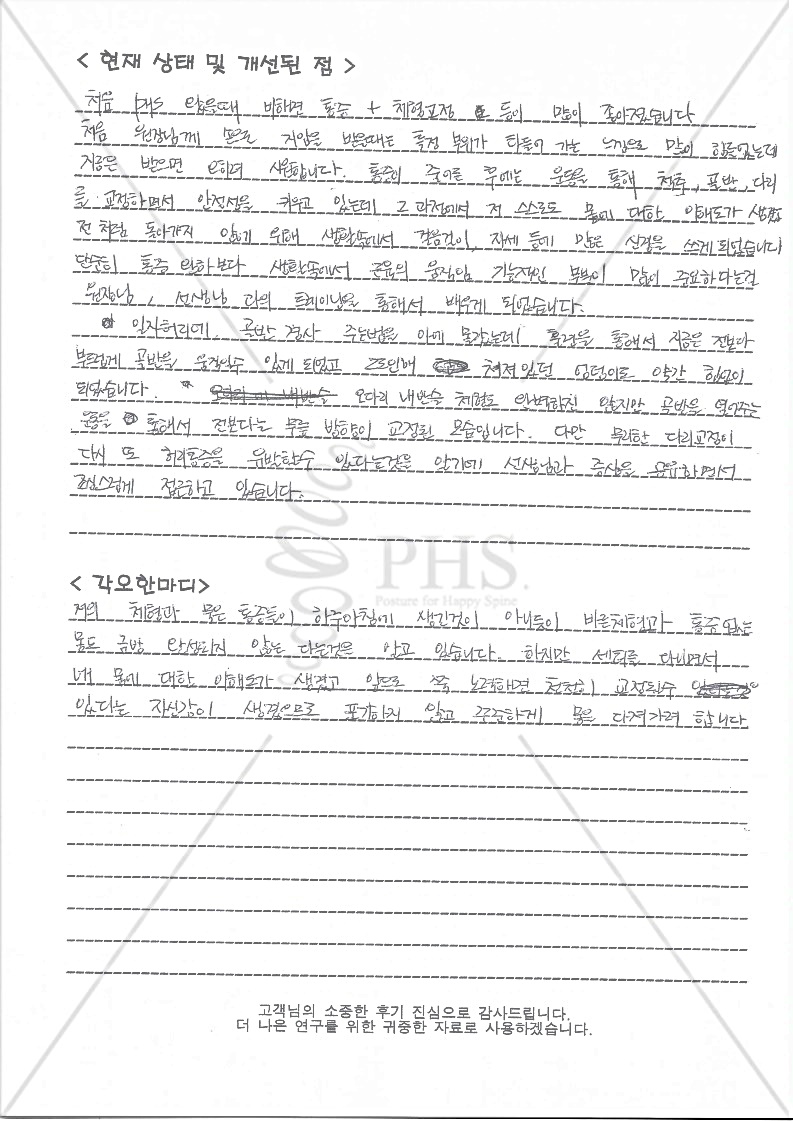 < 현재 상태 및 개선된 점 >
처음 PHS 왔을때 비하면 통증 + 체형교정 등이 많이 좋아졌습니다
처음 원장님께 손으로 지압을 받을때는 특정 부위가 타들어 가는 느낌으로 많이 힘들었는데
지금은 받으면 오히려 시원합니다. 통증이 줄어든 후에는 운동을 통해 척추, 골반, 다리
를 교정하면서 안정성을 키우고 있는데 그 과정에서 저 스스로도 몸에 대한 이해도가 생겼고
전처럼 돌아가지 않기 위해 생활속에서 걸음걸이, 자세 등에 많은 신경을 쓰게 되었습니다
단순히 통증 완화보다 생활속에서 근육의 움직임 기능적인 부분이 많이 중요하다는걸
원장님, 선생님 과의 트레이닝을 통해서 배우게 되었습니다.
일자허리에, 골반 경사 주는법을 아예 몰랐는데 운동을 통해서 지금은 전보다
부드럽게 골반을 움직일수 있게 되었고 그로인해 쳐져있던 엉덩이도 약간 힙업이
되었습니다. 오다리 내반슬 체형도 완벽하진 않지만 골반을 열어주는
운동을 통해서 전보다는 무릎 방향이 교정된 모습입니다. 다만 무리한 다리교정이
다시 또 허리통증을 유발할수 있다는것을 알기에 선생님과 증상을 공유하면서
조심스럽게 접근하고 있습니다.
PHS.
Posture for Happy Spine
< 각오한마디>
저의 체형과 묵은 통증들이 하루아침에 생긴것이 아니듯이 바른체형과 통증없는
몸도 금방 완성되지 않는 다는것은 알고 있습니다. 하지만 센터를 다니면서
내 몸에 대한 이해도가 생겼고 앞으로 쭉 노력하면 천천히 교정될수
있다는 자신감이 생겼으므로 포기하지 않고 꾸준하게 몸을 다져가려 합니다
고객님의 소중한 후기 진심으로 감사드립니다.
더 나은 연구를 위한 귀중한 자료로 사용하겠습니다.